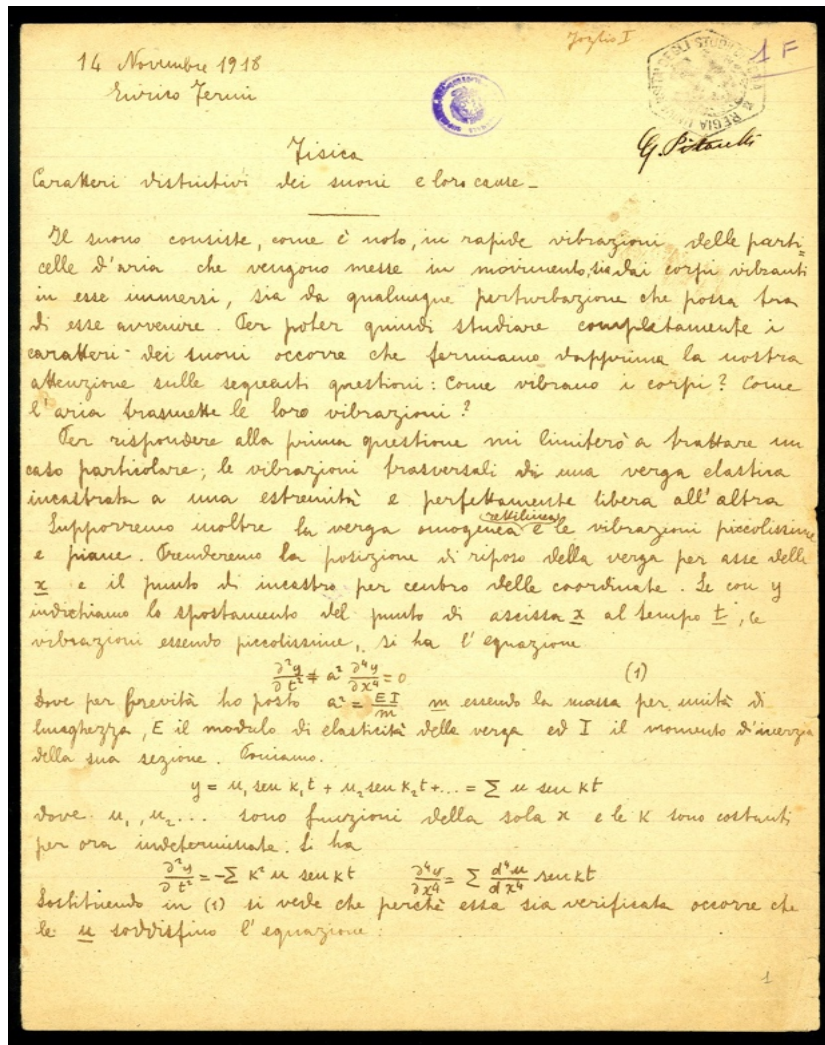 Foglio I
1 F
14 Novembre 1918
Enrico Fermi
G. Pittarelli
Fisica
Caratteri distintivi dei suoni e loro cause_
Il suono consiste, come è noto, in rapide vibrazioni delle parti=
celle d'aria che vengono messe in movimento, sia dai corpi vibranti
in esse immersi, sia da qualunque perturbazione che possa tra
di esse avvenire. Per poter quindi studiare completamente i
caratteri dei suoni occorre che fermiamo dapprima la nostra
attenzione sulle seguenti questioni: Come vibrano i corpi? Come
l'aria trasmette le loro vibrazioni?
Per rispondere alla prima questione mi limiterò a trattare un
caso particolare; le vibrazioni trasversali di una verga elastica
incastrata a una estremità e perfettamente libera all'altra
Supporremo inoltre la verga omogenea (rettilinea) e le vibrazioni piccolissime
e piane. Prenderemo la posizione di riposo della verga per asse delle
x e il punto di incastro per centro delle coordinate. Se con y
indichiamo lo spostamento del punto di ascissa x al tempo t, le
vibrazioni essendo piccolissime, si ha l'equazione
∂²y/∂t² + a² ∂⁴y/∂x⁴ = 0 (1)
dove per brevità ho posto a² = EI/m m essendo la massa per unità di
lunghezza, E il modulo di elasticità della verga ed I il momento d'inerzia
della sua sezione. Poniamo.
y = u₁ sen k₁t + u₂ sen k₂t + ... = Σ u sen kt
dove u₁, u₂ ... sono funzioni della sola x e le K sono costanti
per ora indeterminate. Si ha
∂²y/∂t² = -Σ K² u sen kt ∂⁴y/∂x⁴ = Σ d⁴u/dx⁴ sen kt
Sostituendo in (1) si vede che perchè essa sia verificata occorre che
le u soddisfino l'equazione:
1